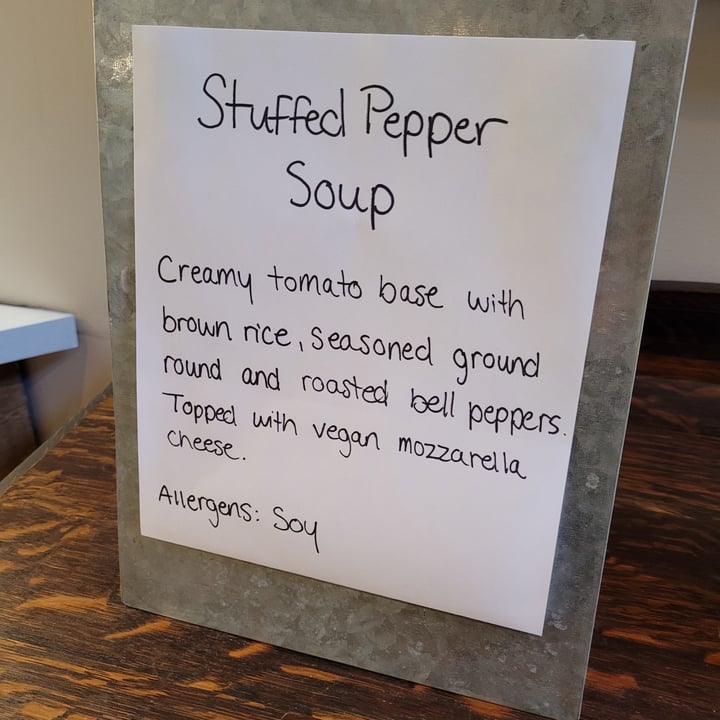 Stuffed Pepper
Soup
Creamy tomato base with
brown rice, seasoned ground
round and roasted bell peppers.
Topped with vegan mozzarella
cheese.
Allergens: Soy